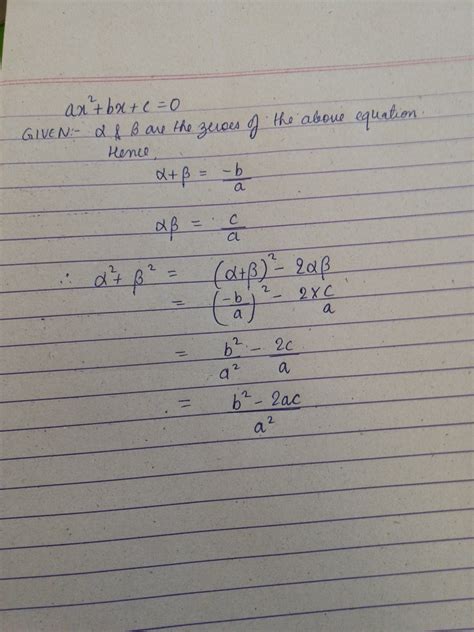 ax²+bx+c=0
GIVEN:- α & β are the zeroes of the above equation.
Hence,
α+β = -b/a
αβ = c/a
∴ α²+β² = (α+β)²-2αβ
= (-b/a)² - 2×c/a
= b²/a² - 2c/a
= b²-2ac/a²